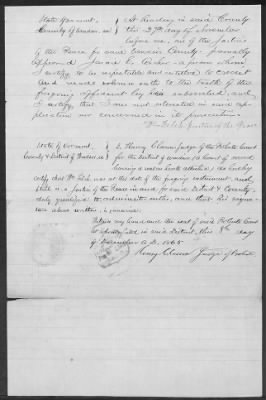 State of Vermont } At Reading in said County
County of Windsor, ss } this 27th day of November
before me, one of the Justices
of the Peace for said County, personally
appeared James a person whom
I certify to be respectable and entitled to credit
and made solemn oath to the truth of the
foregoing affidavit by him subscribed, and
I certify that I am not interested in said app-
lication nor concerned in its prosecution.
Wm Justice of the Peace
State of Vermont, } I, Henry Closson Judge of the Probate Court
County & District of Windsor ss } for the District of Windsor (a Court of record,
having a seal hereto attached) do hereby
certify that Wm was at the date of the foregoing instrument, and
still is a Justice of the Peace in and for said District & County
duly qualified to administer oaths, and that his signa-
ture above written, is genuine.
Witness my hand and the seal of said Probate Court
in said District, this 8th day
of December A.D. 1865
Henry Closson Judge of Probate